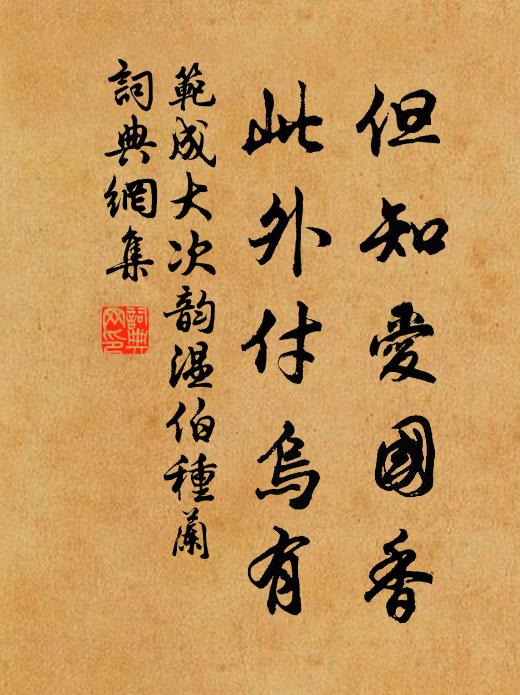 但知愛國香
此外付烏有
範成大次韵溫伯種蘭
詞典網集
詞典網印